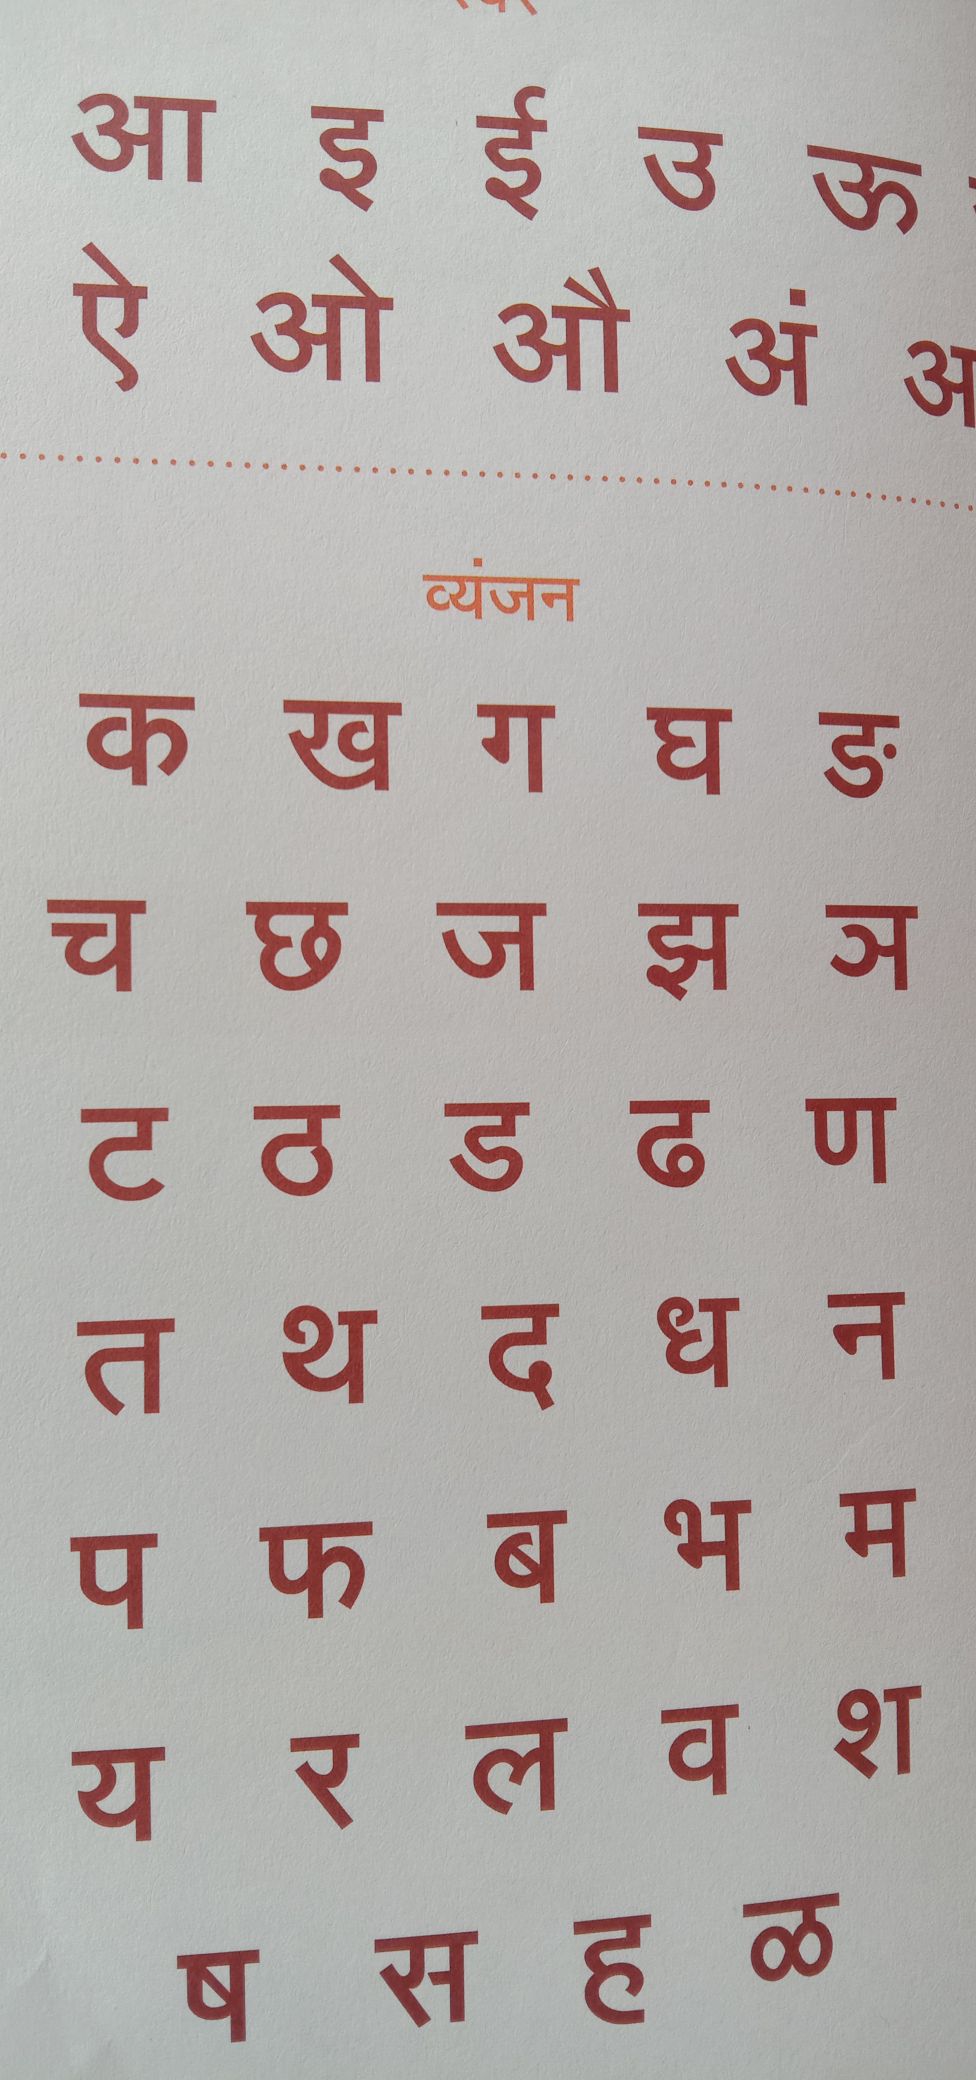 स्वर
आ इ ई उ ऊ
ऐ ओ औ अं
व्यंजन
क ख ग घ ङ
च छ ज झ ञ
ट ठ ड ढ ण
त थ द ध न
प फ ब भ म
य र ल व श
ष स ह ळ